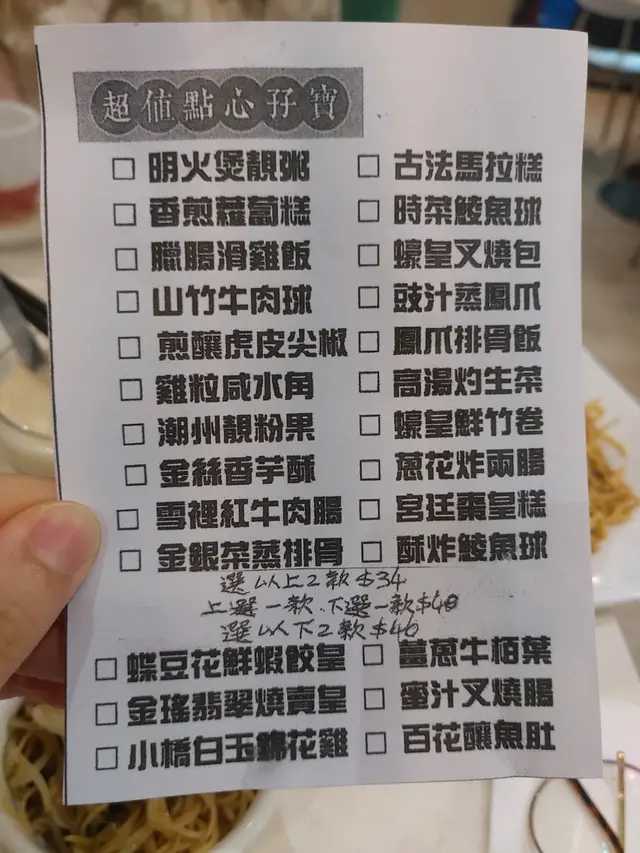 超值點心孖寶
□ 明火煲靚粥 □ 古法馬拉糕
□ 香煎蘿蔔糕 □ 時菜鯪魚球
□ 臘腸滑雞飯 □ 蠔皇叉燒包
□ 山竹牛肉球 □ 豉汁蒸鳳爪
□ 煎釀虎皮尖椒 □ 鳳爪排骨飯
□ 雞粒咸水角 □ 高湯灼生菜
□ 潮州靚粉果 □ 蠔皇鮮竹卷
□ 金絲香芋酥 □ 蔥花炸兩腸
□ 雪裡紅牛肉腸 □ 宮廷棗皇糕
□ 金銀菜蒸排骨 □ 酥炸鯪魚球
選以上2款$34
上選一款.下選一款$40
選以下2款$46
□ 蝶豆花鮮蝦餃皇 □ 薑蔥牛栢葉
□ 金瑤翡翠燒賣皇 □ 蜜汁叉燒腸
□ 小橋白玉錦花雞 □ 百花釀魚肚